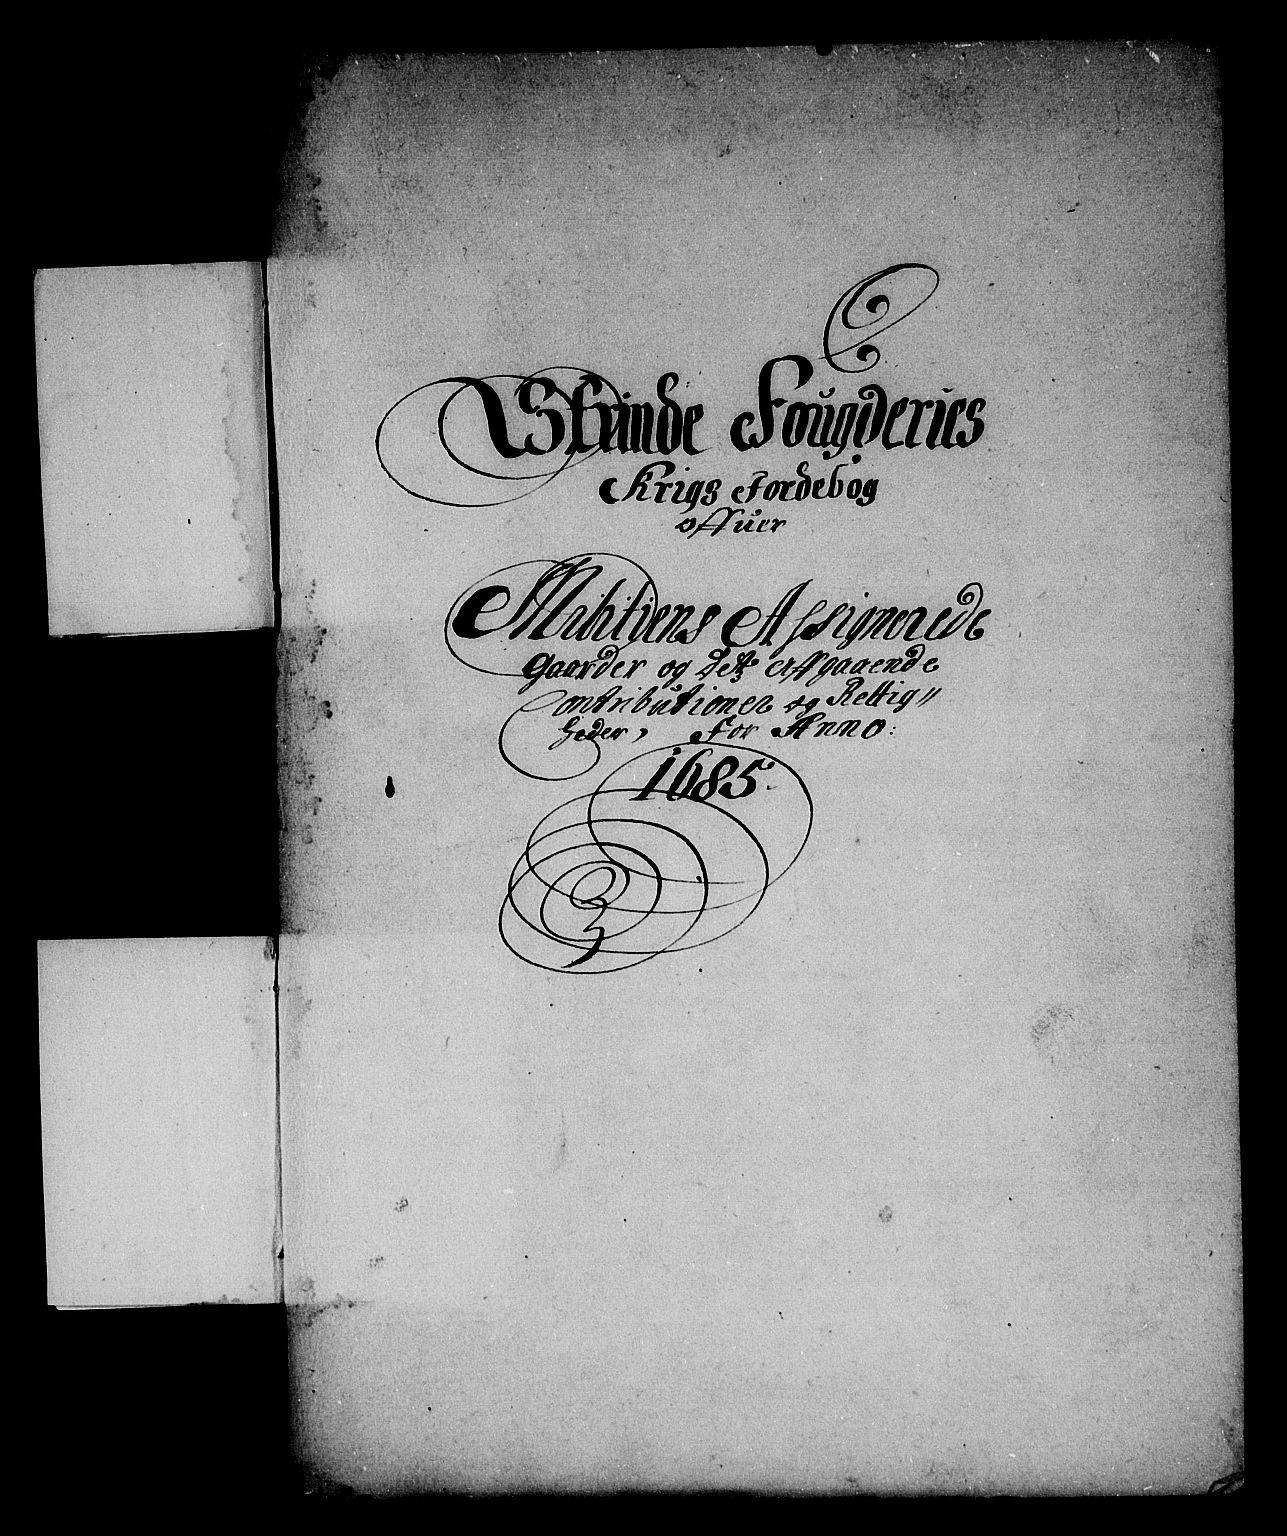 Strinde Fougderies
Krigs Jordebog
offuer
Militiens Assignerede
Gaarder og Detz Affgaaende
Contributioner og Rettig"
heder, For Anno:
1685.